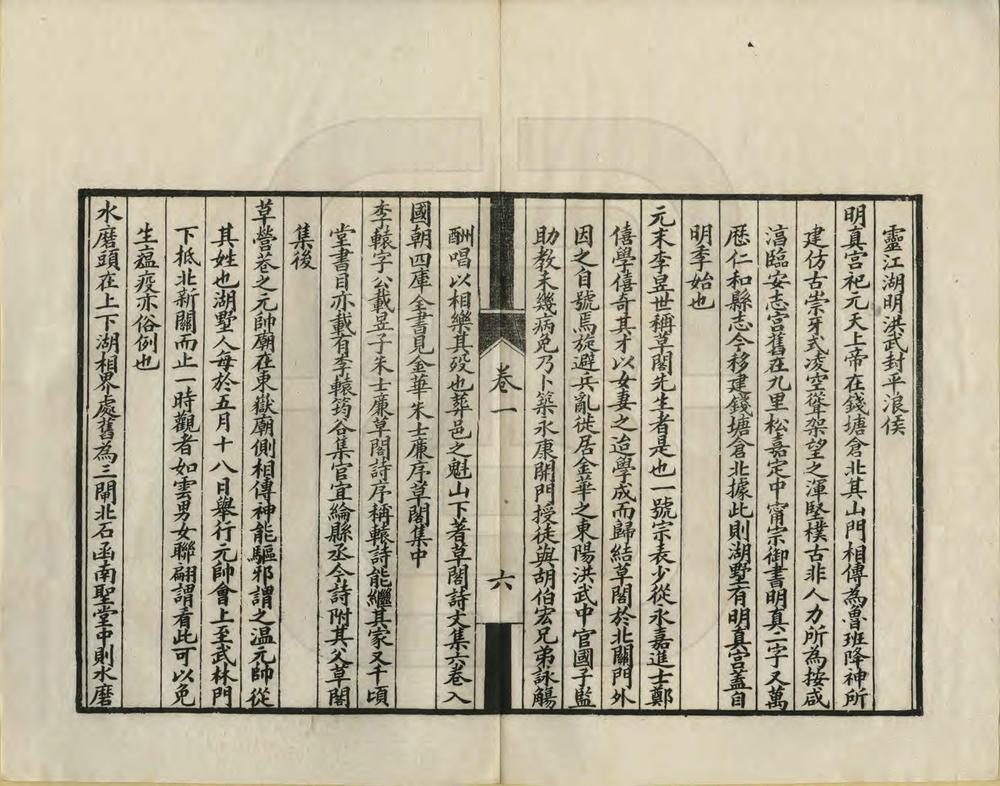 靈江湖明洪武封平浪侯
明真宮祀元天上帝在錢塘倉北其山門相傳為魯班降神所
建仿古崇牙式凌空聳架望之渾堅樸古非人力所為按咸
淳臨安志宮舊在九里松嘉定中甯宗御書明真二字又萬
歷仁和縣志今移建錢塘倉北據此則湖墅有明真宮蓋自
明季始也
元末李昱世稱草閣先生者是也一號宗表少從永嘉進士鄭
僖學僖奇其才以女妻之迨學成而歸結草閣於北關門外
因之自號焉旋避兵亂徙居金華之東陽洪武中官國子監
助教未幾病免乃卜築永康開門授徒與胡伯宏兄弟詠觴
卷一
六
酬唱以相樂其歿也葬邑之魁山下著草閣詩文集六卷入
國朝四庫全書見金華朱士廉序草閣集中
李轅字公載昱子朱士廉草閣詩序稱轅詩能繼其家又千頃
堂書目亦載有李轅筠谷集官宜綸縣丞今詩附其父草閣
集後
草營巷之元帥廟在東嶽廟側相傳神能驅邪謂之溫元帥從
其姓也湖墅人每於五月十八日舉行元帥會上至武林門
下抵北新關而止一時觀者如雲男女聯翩謂看此可以免
生瘟疫亦俗例也
水磨頭在上下湖相界處舊為三閘北石函南聖堂中則水磨